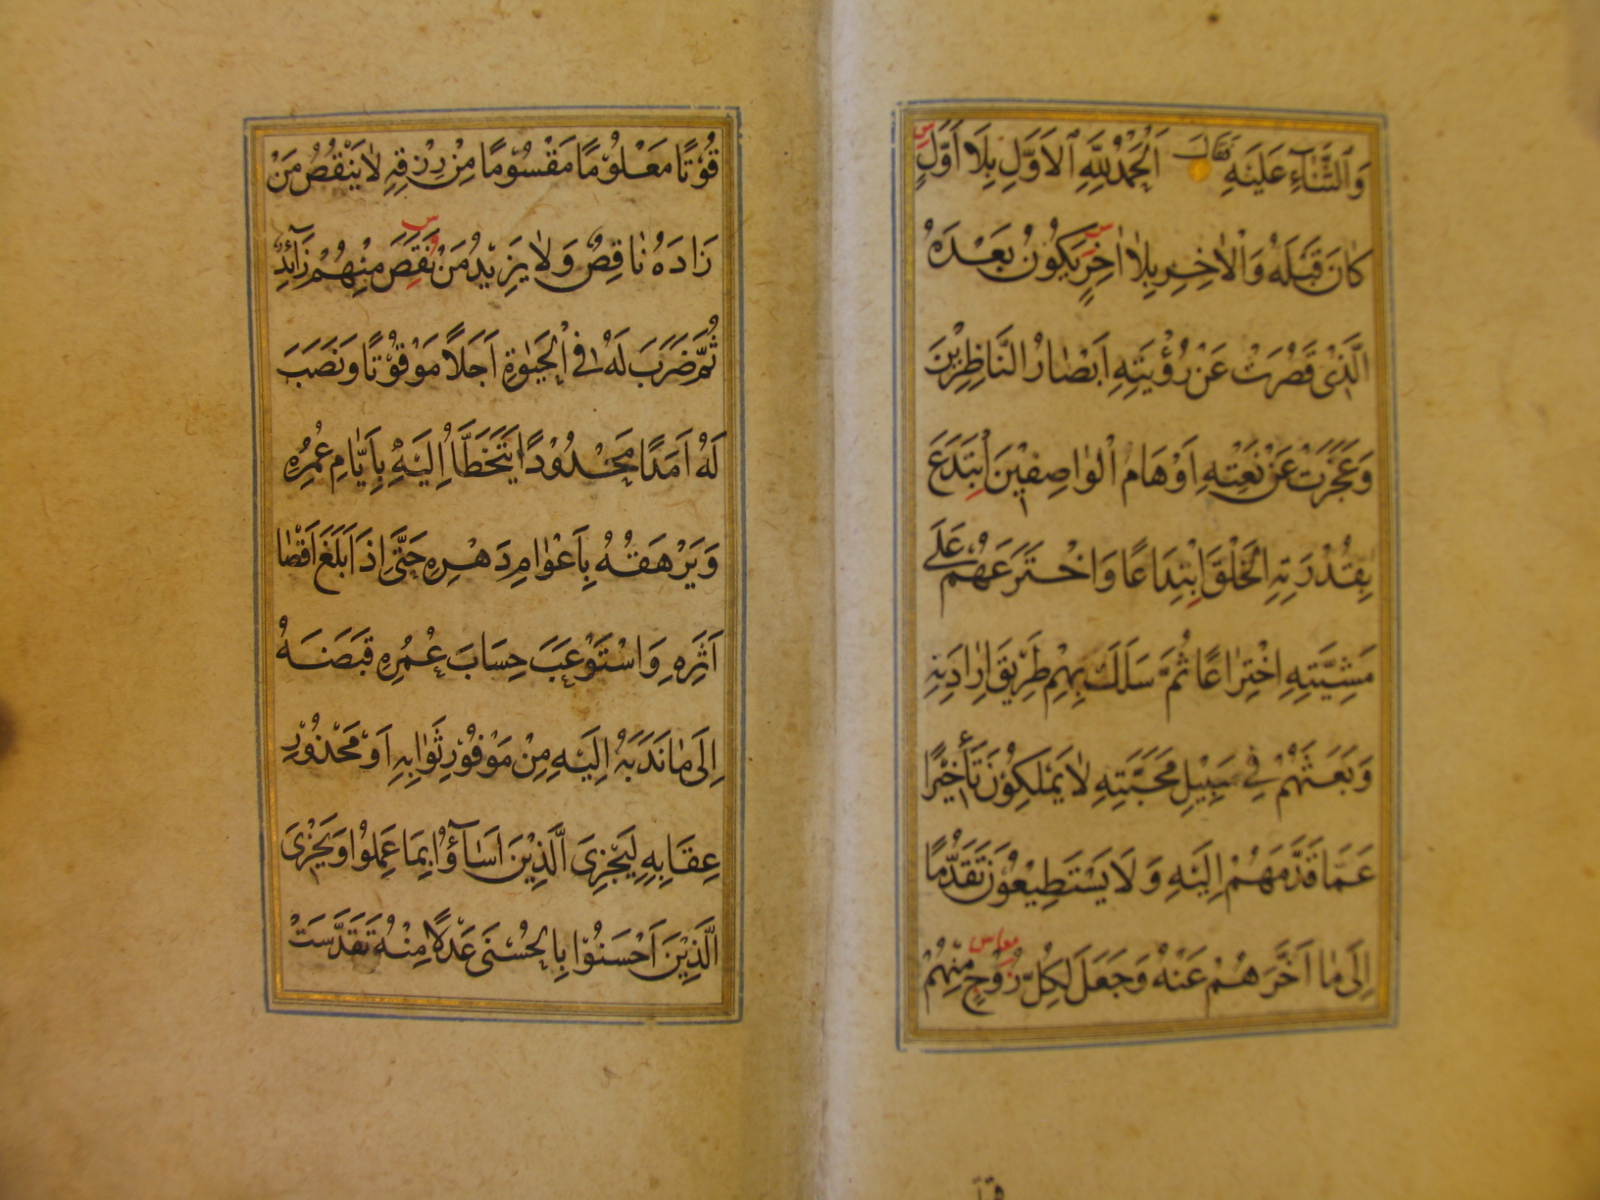 وَالثَّنَآءِ عَلَيْهِ فَقَالَ اَلْحَمْدُ لِلّٰهِ الْاَوَّلِ بِلَا اَوَّلٍ
كَانَ قَبْلَهُ وَالْاٰخِرِ بِلَا اٰخِرٍ يَكُونُ بَعْدَهُ
الَّذِىْ قَصُرَتْ عَنْ رُؤْيَتِهِ اَبْصَارُ النَّاظِرِيْنَ
وَعَجَزَتْ عَنْ نَعْتِهِ اَوْهَامُ الْوَاصِفِيْنَ اِبْتَدَعَ
بِقُدْرَتِهِ الْخَلْقَ ابْتِدَاعًا وَاخْتَرَعَهُمْ عَلٰى
مَشِيَّتِهِ اخْتِرَاعًا ثُمَّ سَلَكَ بِهِمْ طَرِيْقَ اِرَادَتِهِ
وَبَعَثَهُمْ فِى سَبِيْلِ مَحَبَّتِهِ لَا يَمْلِكُوْنَ تَأْخِيْرًا
عَمَّا قَدَّمَهُمْ اِلَيْهِ وَلَا يَسْتَطِيْعُوْنَ تَقَدُّمًا
اِلٰى مَا اَخَّرَهُمْ عَنْهُ وَجَعَلَ لِكُلِّ زَوْجٍ مِنْهُمْ
قُوْتًا مَعْلُوْمًا مَقْسُوْمًا مِنْ رِزْقِهِ لَا يَنْقُصُ مَنْ
زَادَهُ نَاقِصٌ وَلَا يَزِيْدُ مَنْ نَقَصَ مِنْهُمْ زَآئِدٌ
ثُمَّ ضَرَبَ لَهُ فِى الْحَيٰوةِ اَجَلًا مَوْقُوْتًا وَنَصَبَ
لَهُ اَمَدًا مَحْدُوْدًا يَتَخَطَّأُ اِلَيْهِ بِاَيَّامِ عُمُرِهِ
وَيَرْهَقُهُ بِاَعْوَامِ دَهْرِهِ حَتّٰى اِذَا بَلَغَ اَقْصَا
اَثَرِهِ وَاسْتَوْعَبَ حِسَابَ عُمُرِهِ قَبَضَهُ
اِلٰى مَا نَدَبَهُ اِلَيْهِ مِنْ مَوْفُوْرِ ثَوَابِهِ اَوْ مَحْذُوْرِ
عِقَابِهِ لِيَجْزِىَ الَّذِيْنَ اَسَآؤُا بِمَا عَمِلُوْا وَيَجْزِىَ
الَّذِيْنَ اَحْسَنُوْا بِالْحُسْنٰى عَدْلًا مِنْهُ تَقَدَّسَتْ